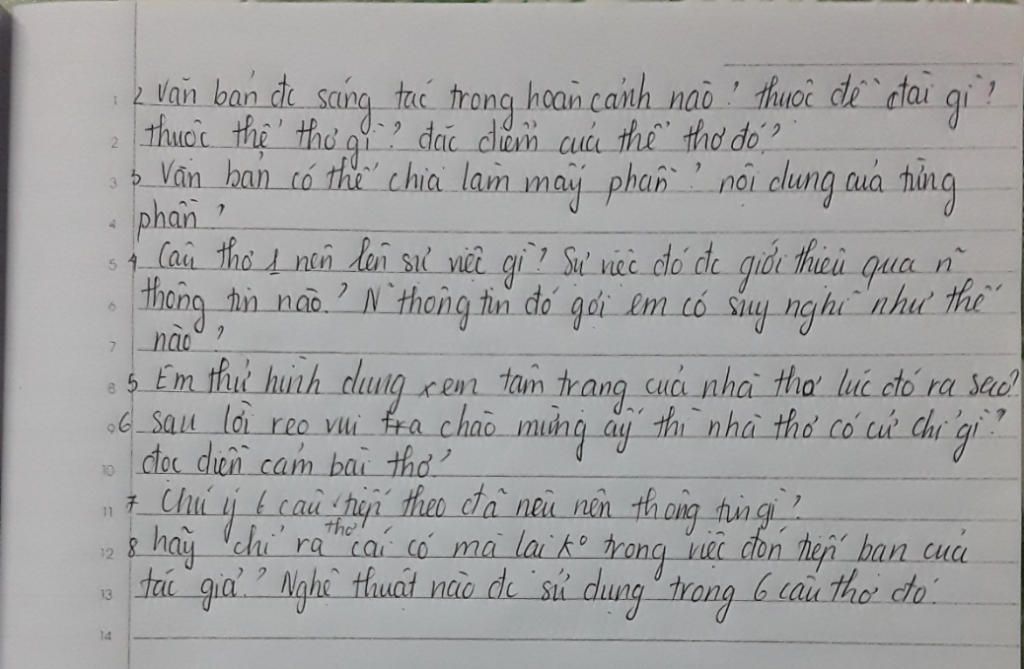 2 Văn bản đc sáng tác trong hoàn cảnh nào? thuộc đề tài gì?
thuộc thể thơ gì? đặc điểm của thể thơ đó?
3 Văn bản có thể chia làm mấy phần? nội dung của từng
phần?
4 Câu thơ 1 nên lên sự việc gì? Sự việc đó đc giới thiệu qua n~
thông tin nào? N~ thông tin đó gợi em có suy nghĩ như thế
nào?
5 Em thử hình dung xem tâm trạng của nhà thơ lúc đó ra sao?
6 sau lời reo vui chào mừng ấy thì nhà thơ có cử chỉ gì?
đọc diễn cảm bài thơ?
7 Chú ý 6 câu tiếp theo đã nêu nên thông tin gì?
8 hãy chỉ ra thơ cái có mà lại ko trong việc đón tiếp bạn của
tác giả? Nghệ thuật nào đc sử dụng trong 6 câu thơ đó.
1
2
3
4
5
6
7
8
9
10
11
12
13
14